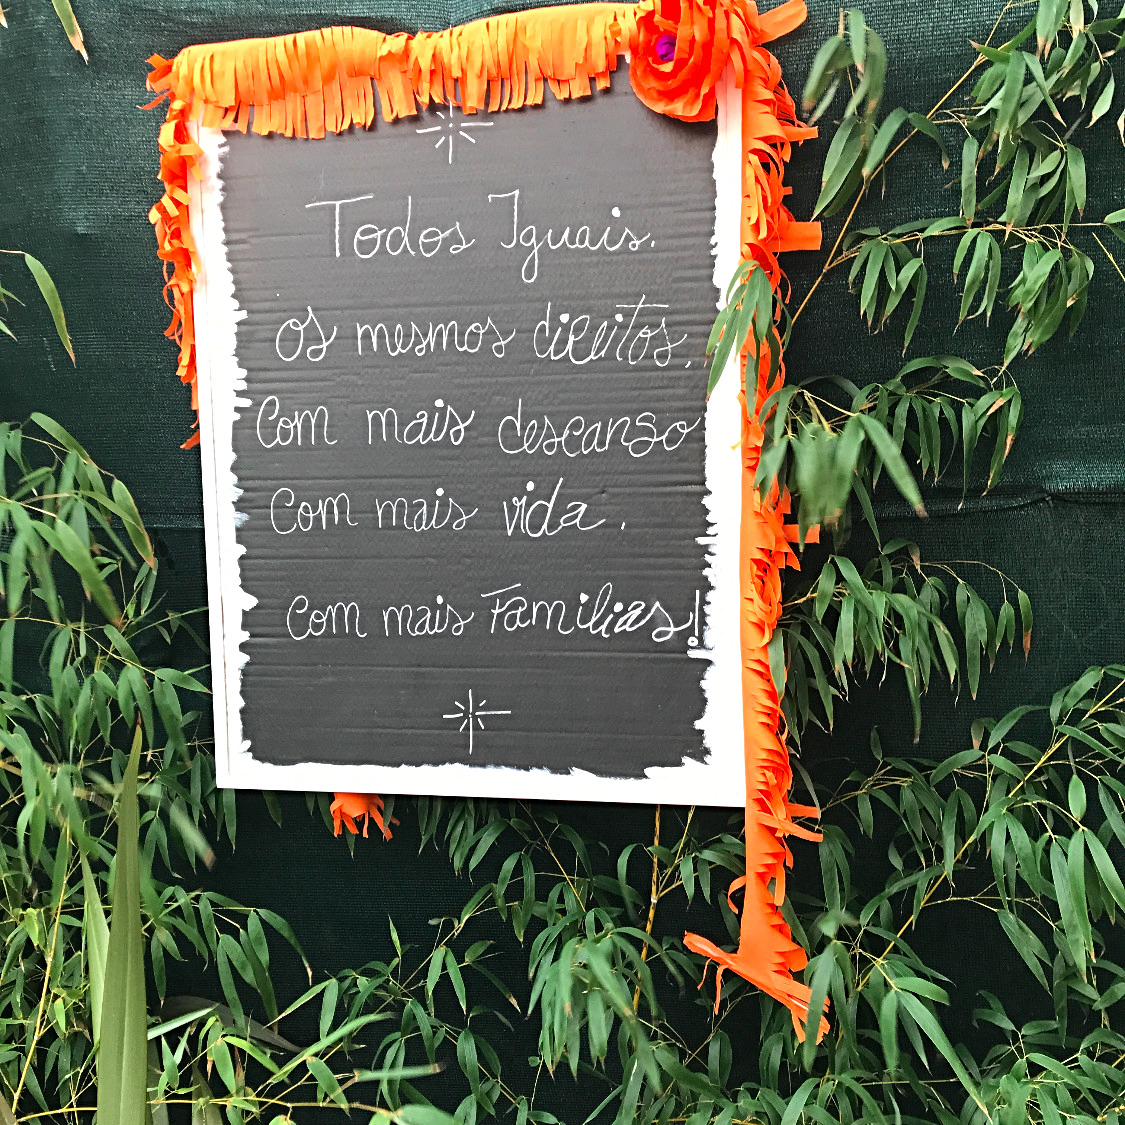 Todos Iguais.
os mesmos direitos,
Com mais descanso
Com mais vida.
Com mais Familias!